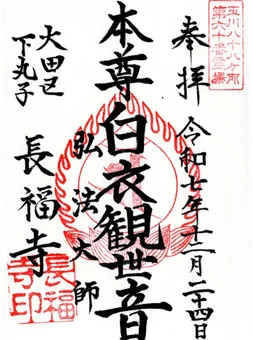 玉川八十八ヶ所
第六十番霊場
奉拝
令和七年十二月二十四日
本尊白衣観世音
弘法大師
大田区
下丸子
長福寺
長福
寺印